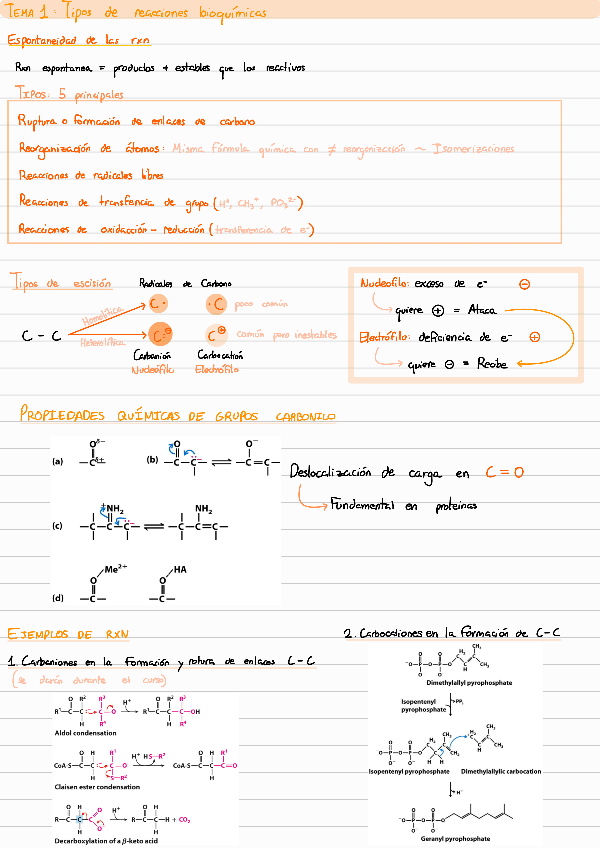 TEMA 1: Tipos de reacciones bioquímicas
Espontaneidad de las rxn
Rxn espontanea = productos + estables que los reactivos
TIPOS: 5 principales
Ruptura o formación de enlaces de carbono
Reorganización de átomos: Misma fórmula química con ≠ reorganización ~ Isomerizaciones
Reacciones de radicales libres
Reacciones de transfencia de grupo (H⁺, CH₃⁺, PO₃²⁻)
Reacciones de oxidación - reducción (transferencia de e⁻)
Tipos de escisión
Radicales de Carbono
C - C
Homolítica
C· ·C poco común
Heterolítica
C:⊖ C⊕ común pero inestables
Carbanión Carbocatión
Nucleófilo Electrófilo
Nucleófilo: exceso de e⁻ ⊖
quiere ⊕ = Ataca
Electrófilo: deficiencia de e⁻ ⊕
quiere ⊖ = Recibe
PROPIEDADES QUÍMICAS DE GRUPOS CARBONILO
(a) O δ− C δ+
(b) O C C O⁻ C C
(c) ⁺NH₂ C C C NH₂ C C C
(d) Me²⁺ O C HA O C
Deslocalización de carga en C=O
Fundamental en proteinas
EJEMPLOS DE RXN
1. Carbaniones en la formación y rotura de enlaces C-C
(se darán durante el curso)
R¹ C C R² H R³ C O R⁴ H⁺ R¹ C C C OH O R² R³ H R⁴
Aldol condensation
CoA-S C C H O H R¹ C O S R² H⁺ HS-R² CoA-S C C C O O H R¹ H
Claisen ester condensation
R C C C O H O H O H⁺ R C C H O H H + CO₂
Decarboxylation of a β-keto acid
2. Carbocationes en la formación de C-C
⁻O P O P O C H₂ C H CH₃ CH₃
Dimethylallyl pyrophosphate
Isopentenyl
pyrophosphate
PPᵢ
Isopentenyl pyrophosphate Dimethylallylic carbocation
H⁺
Geranyl pyrophosphate